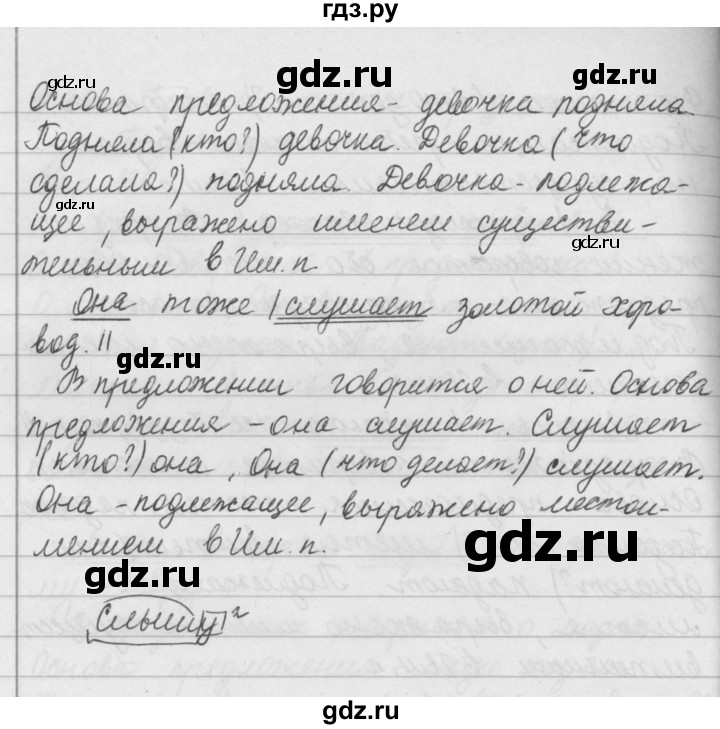 гдз.ру
gdz.ru gdz.ru gdz.ru
Основа предложения - девочка подняла.
Подняла (кто?) девочка. Девочка (что
сделала?) подняла. Девочка - подлежа-
gdz.ru
щее, выражено именем существи-
gdz.ru
тельным в Им. п.
Она тоже | слушает золотой хоро-
вод. ||
В предложении говорится о ней. Основа
предложения - она слушает. Слушает
(кто?) она, Она (что делает?) слушает.
Она - подлежащее, выражено местои-
мением в Им. п.
gdz.ru
gdz.ru
Слышу 2
gdz.ru
gdz.ru